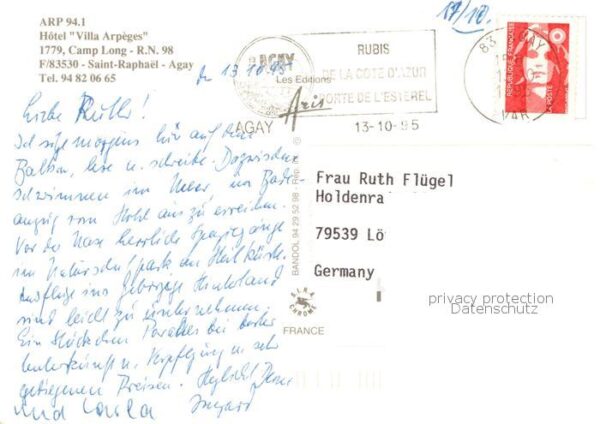 ARP 94.1
Hôtel "Villa Arpèges"
1779, Camp Long - R.N. 98
F/83530 - Saint-Raphaël - Agay
Tel. 94 82 06 65
13.10.95
Liebe Ruth!
Ich sitze morgens hier auf dem
Balkon, lese u. schreibe. Dazwischen
schwimmen im Meer, im Bade-
anzug vom Hotel aus zu erreichen.
Vor der Nase herrliche Spaziergänge
im Naturschutzpark an Steilküste.
Ausflüge ins gebirgige Hinterland
sind leicht zu unternehmen.
Ein Stückchen Paradies bei bester
Unterkunft u. Verpflegung u. sehr
gediegenen Preisen. Herzlichst Deine
und
Irmgard
17/10.
AGAY
RUBIS
DE LA COTE D'AZUR
PORTE DE L'ESTEREL
AGAY
13-10-95
Les Editions
Aris
83 AGAY
VAR
REPUBLIQUE FRANÇAISE
LA POSTE
BANDOL 94 29 52 98
Frau Ruth Flügel
Holdenra
79539 Lö
Germany
FRANCE
privacy protection
Datenschutz